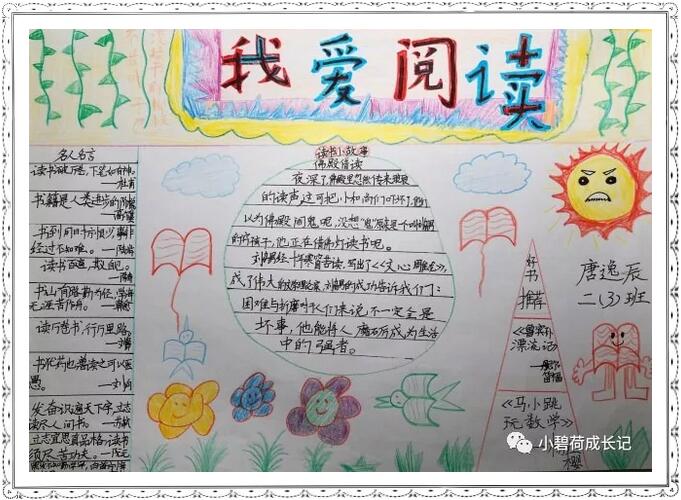 我爱阅读
名人名言
读书破万卷,下笔如有神。
——杜甫
书籍是人类进步的阶梯
——高尔基
书到用时方恨少,事非
经过不知难。——陆游
读书百遍,其义自见。
书山有路勤为径,学海
无涯苦作舟。——韩愈
读万卷书,行万里路。
——刘彝
书犹药也善读之可以医
愚。
——刘向
发奋识遍天下字,立志
读尽人间书。——苏轼
立志宜思真品格,读书
须尽苦功夫。——阮元
读书小故事
佛殿借读
夜深了,佛殿里忽然传来琅琅
的读声,这可把小和尚们吓坏了,他们
以为佛殿闹鬼呢,没想
他正在借佛灯读书呢。
刘勰经十年寒窗苦读,写出了《文心雕龙》
成了伟大的文学理论家,刘勰的成功告诉我们:
困难与折磨对于人们来说,不一定会是
坏事,他能将人磨历成为生活
中的强者。
好书
推荐
《鲁宾孙
漂流记》
笛福
《马小跳
玩数学》
樱
唐逸辰
二(3)班
小碧荷成长记